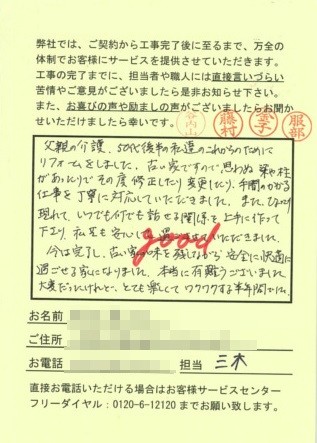 弊社では、ご契約から工事完了後に至るまで、万全の
体制でお客様にサービスを提供させていただきます。
工事の完了までに、担当者や職人には直接言いづらい
苦情やご意見がございましたら是非お知らせ下さい。
また、お喜びの声や励ましの声がございましたらお聞か
せいただけましたら幸いです。
藤村
服部
父親の介護、50代後半の私達のこれからのために
リフォームをしました。古い家ですので思わぬ梁や柱
があったりでその度修正したり変更したり、手間のかかる
仕事を丁寧に対応していただきました。また、
現れて、いつでも何でも話せる関係を上手に作って
下さり、私共も安心して過ごさせていただきました。
good
今は完了し、古い家の味を残しながら安全に快適に
過ごせる家になりました。本当に有難うございました。
大変だったけれど、とても楽しくてワクワクする半年間でした。
お名前
ご住所
お電話
担当 三木
直接お電話いただける場合はお客様サービスセンター
フリーダイヤル:0120-6-12120までお願い致します。